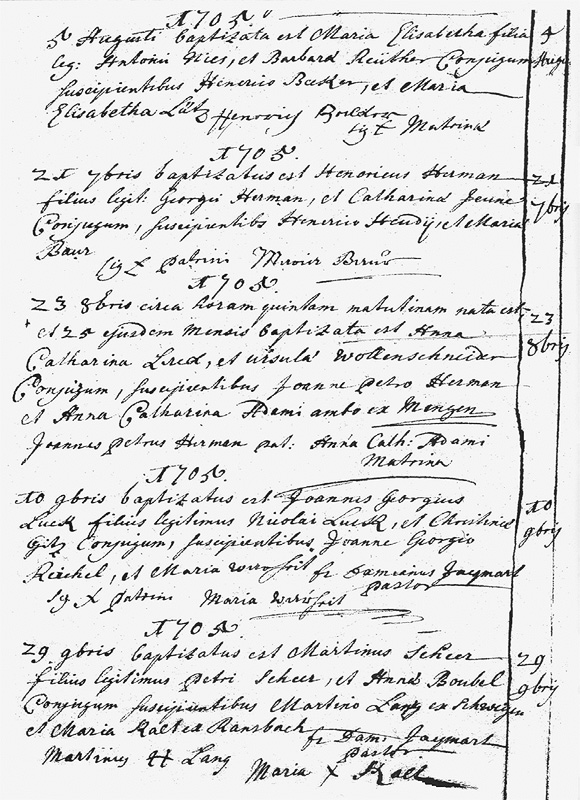 1705.
5 Augusti baptizata est Maria Elisabetha filia
leg: Antonii Nies, et Barbara Reuther Conjugum
suscipientibus Henrico Becker, et Maria
Elisabetha Lutz Henricus
sig + Matrina
4
Aug
1705.
21 7bris baptizatus est Henoricus Herman
filius legit: Georgii Herman, et Catharina Jeune
Conjugum, suscipientibs Henerico Heudij, et Maria
Baur
sig + patrini Maria
21
7bris
1705.
23 8bris circa horam quintam matutinam nata est
et 25 ejusdem mensis baptizata est Anna
Catharina Lred, et ursula Wollenschneider
Conjugum, suscipientibus Joanne petro Herman
et Anna Catharina Adami ambo ex Mengen
Joannes petrus Herman pat: Anna Cath: Adami
Matrina
23
8bris
1705.
10 9bris baptizatus est Joannes Georgius
Lueck filius legitimus Nicolai Lueck, et Christina
Gitz Conjugum, suscipientibus Joanne Georgio
Reichel, et Maria fr Damianus Jaymart
pastor
sig X patrini Maria
10
9bris
1705.
29 9bris baptizatus est Martinus Scheer
filius legitimus petri Scheer, et Anna Boubel
Conjugum suscipientibus Martino Lang ex
et Maria Kael ex Ransbach fr Dami Jaymart
pastor
Martinus H Lang
Maria + Kael
29
9bris